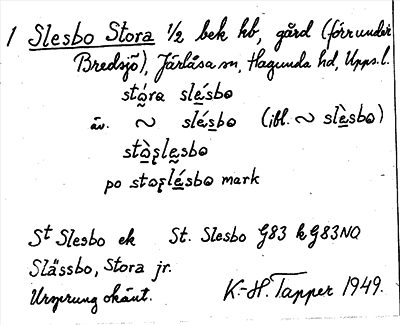 1 Slesbo Stora 1/2 bek hb, gård (förr under
Bredsjö), Järlåsa sn, Hagunda hd, Upps. l.
stóra slésbo
äv. ~ slésbo (ibl. ~ slèsbo)
stòrslesbo
po storslésbo mark
St Slesbo ek St. Slesbo G83 k G83NO
Slässbo, Stora jr.
Ursprung okänt. K.-H. Tapper 1949.